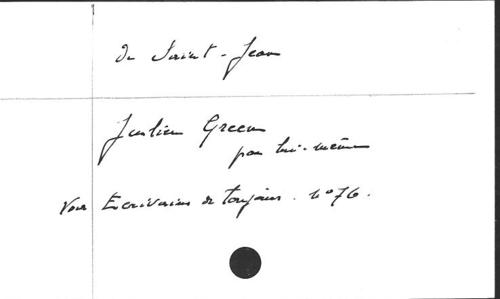 De Saint-Jean
Julien Green
par lui-même
Voir Ecrivains de toujours. N° 76.